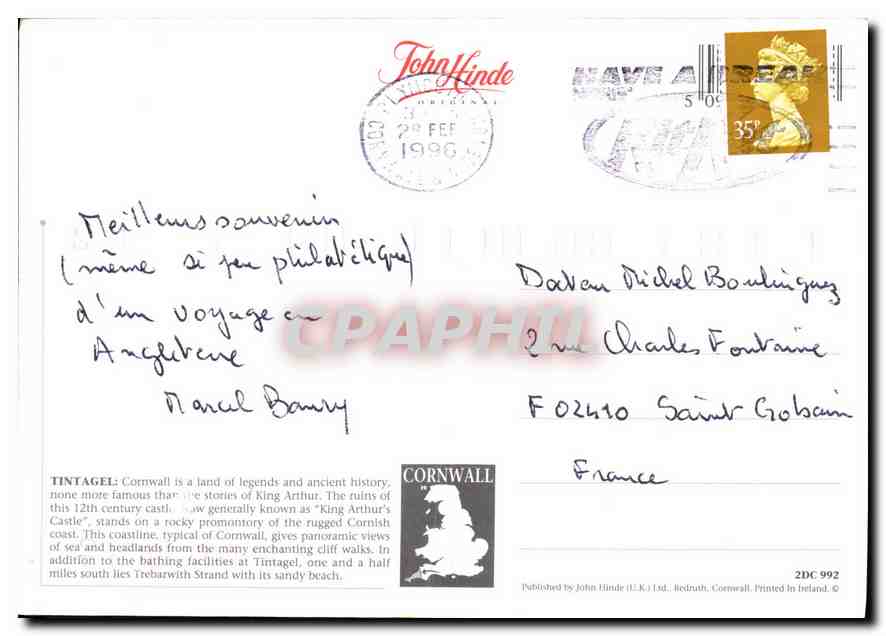 John Hinde
ORIGINAL
28 FEB
1996
HAVE A BREAK
5 09
35P
Meilleurs souvenirs
(même si peu philatélique)
d'un voyage en
Angleterre
Marcel
Michel Boulinguez
2 rue Charles Fontaine
F 02410 Saint Gobain
France
CPAPHIL
TINTAGEL: Cornwall is a land of legends and ancient history,
none more famous than the stories of King Arthur. The ruins of
this 12th century castle now generally known as "King Arthur's
Castle", stands on a rocky promontory of the rugged Cornish
coast. This coastline, typical of Cornwall, gives panoramic views
of sea and headlands from the many enchanting cliff walks. In
addition to the bathing facilities at Tintagel, one and a half
miles south lies Trebarwith Strand with its sandy beach.
CORNWALL
2DC 992
Published by John Hinde (U.K.) Ltd., Redruth, Cornwall. Printed in Ireland. ©